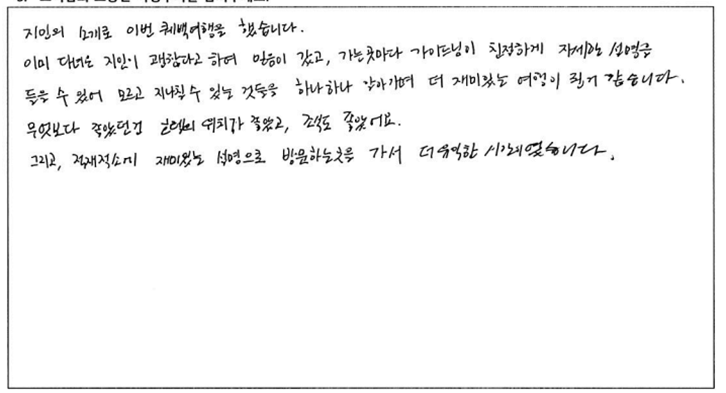 지인의 소개로 이번 퀘백여행을 했습니다.
이미 다녀온 지인이 괜찮다고 하여 믿음이 갔고, 가는곳마다 가이드님이 친절하게 자세한 설명을
들을 수 있어 모르고 지나칠 수 있는 것들을 하나하나 알아가며 더 재미있는 여행이 된거 같습니다.
무엇보다 좋았던건 호텔의 위치가 좋았고, 조식도 좋았어요.
그리고, 적재적소에 재미있는 설명으로 방문하는곳을 가서 더 유익한 시간이였습니다.